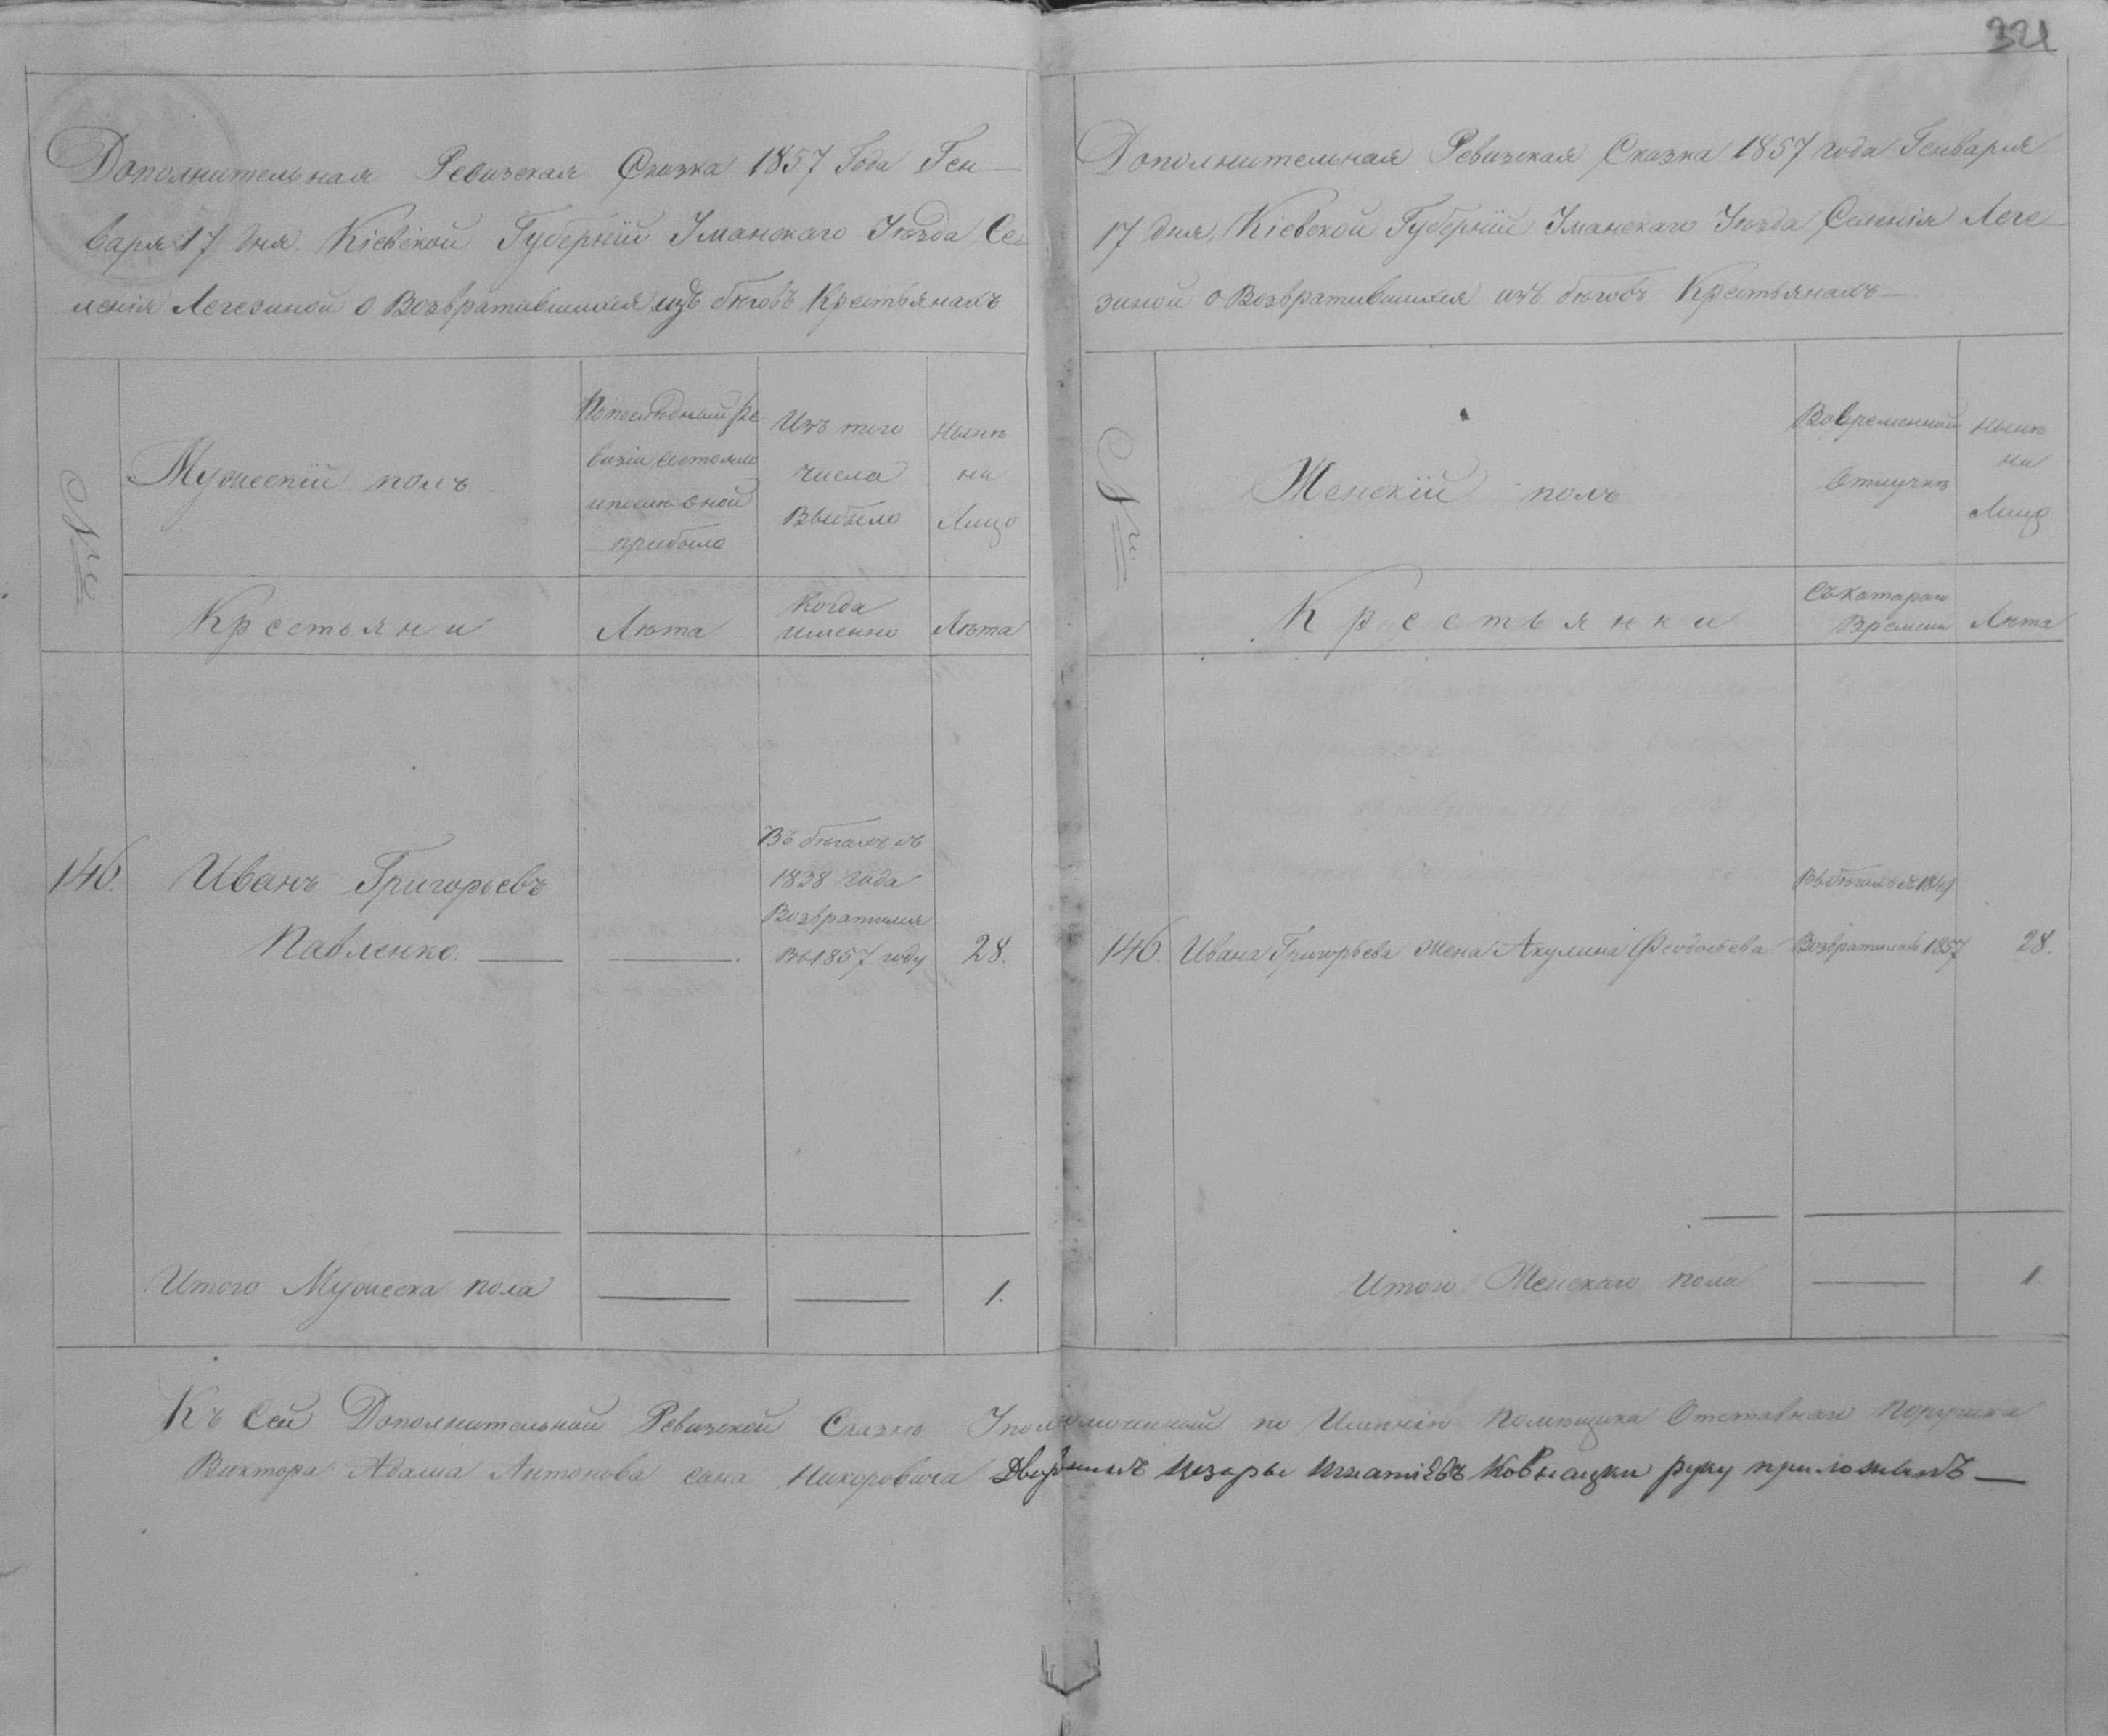 321
Дополнительная Ревизская Сказка 1857 Года Ген
варя 17 дня Кіевской Губерніи Уманскаго Уезда Се
ленія Легезиной о Возвратившихся изъ беговъ Крестьянахъ
№
Мужескій полъ
По последней Ре
визіи состояло
и после оной
прибыло
Изъ того
числа
Выбыло
Ныне
на
Лицо
Крестьяни
Лета
Когда
именно
Лета
146.
Иванъ Григорьевъ
Павленко.
Въ бегахъ съ
1838 года
Возвратился
въ 1857 году
28.
Итого Мужеска пола
1.
Дополнительная Ревизская Сказка 1857 года Генваря
17 дня, Кіевской Губерніи Уманскаго Уезда Селенія Леге
зиной о Возвратившихся изъ беговъ Крестьянахъ
№
Женскій полъ
Во временной
Отлучке
Ныне
на
Лицо
Крестьянки
Съ катараго
Времени
Лета
146. Ивана Григорьева жена Акулина Феодосьева
Въ бегахъ съ
Возвратилась 1857
28.
Итого Женскаго пола
1
Къ Сей Дополнительной Ревизской Сказке Уполномоченный по Именію Помещика Отставнаго Поручика
Виктора Адама Антонова сына Дворянинъ Цезарь Игнатіевъ руку приложилъ